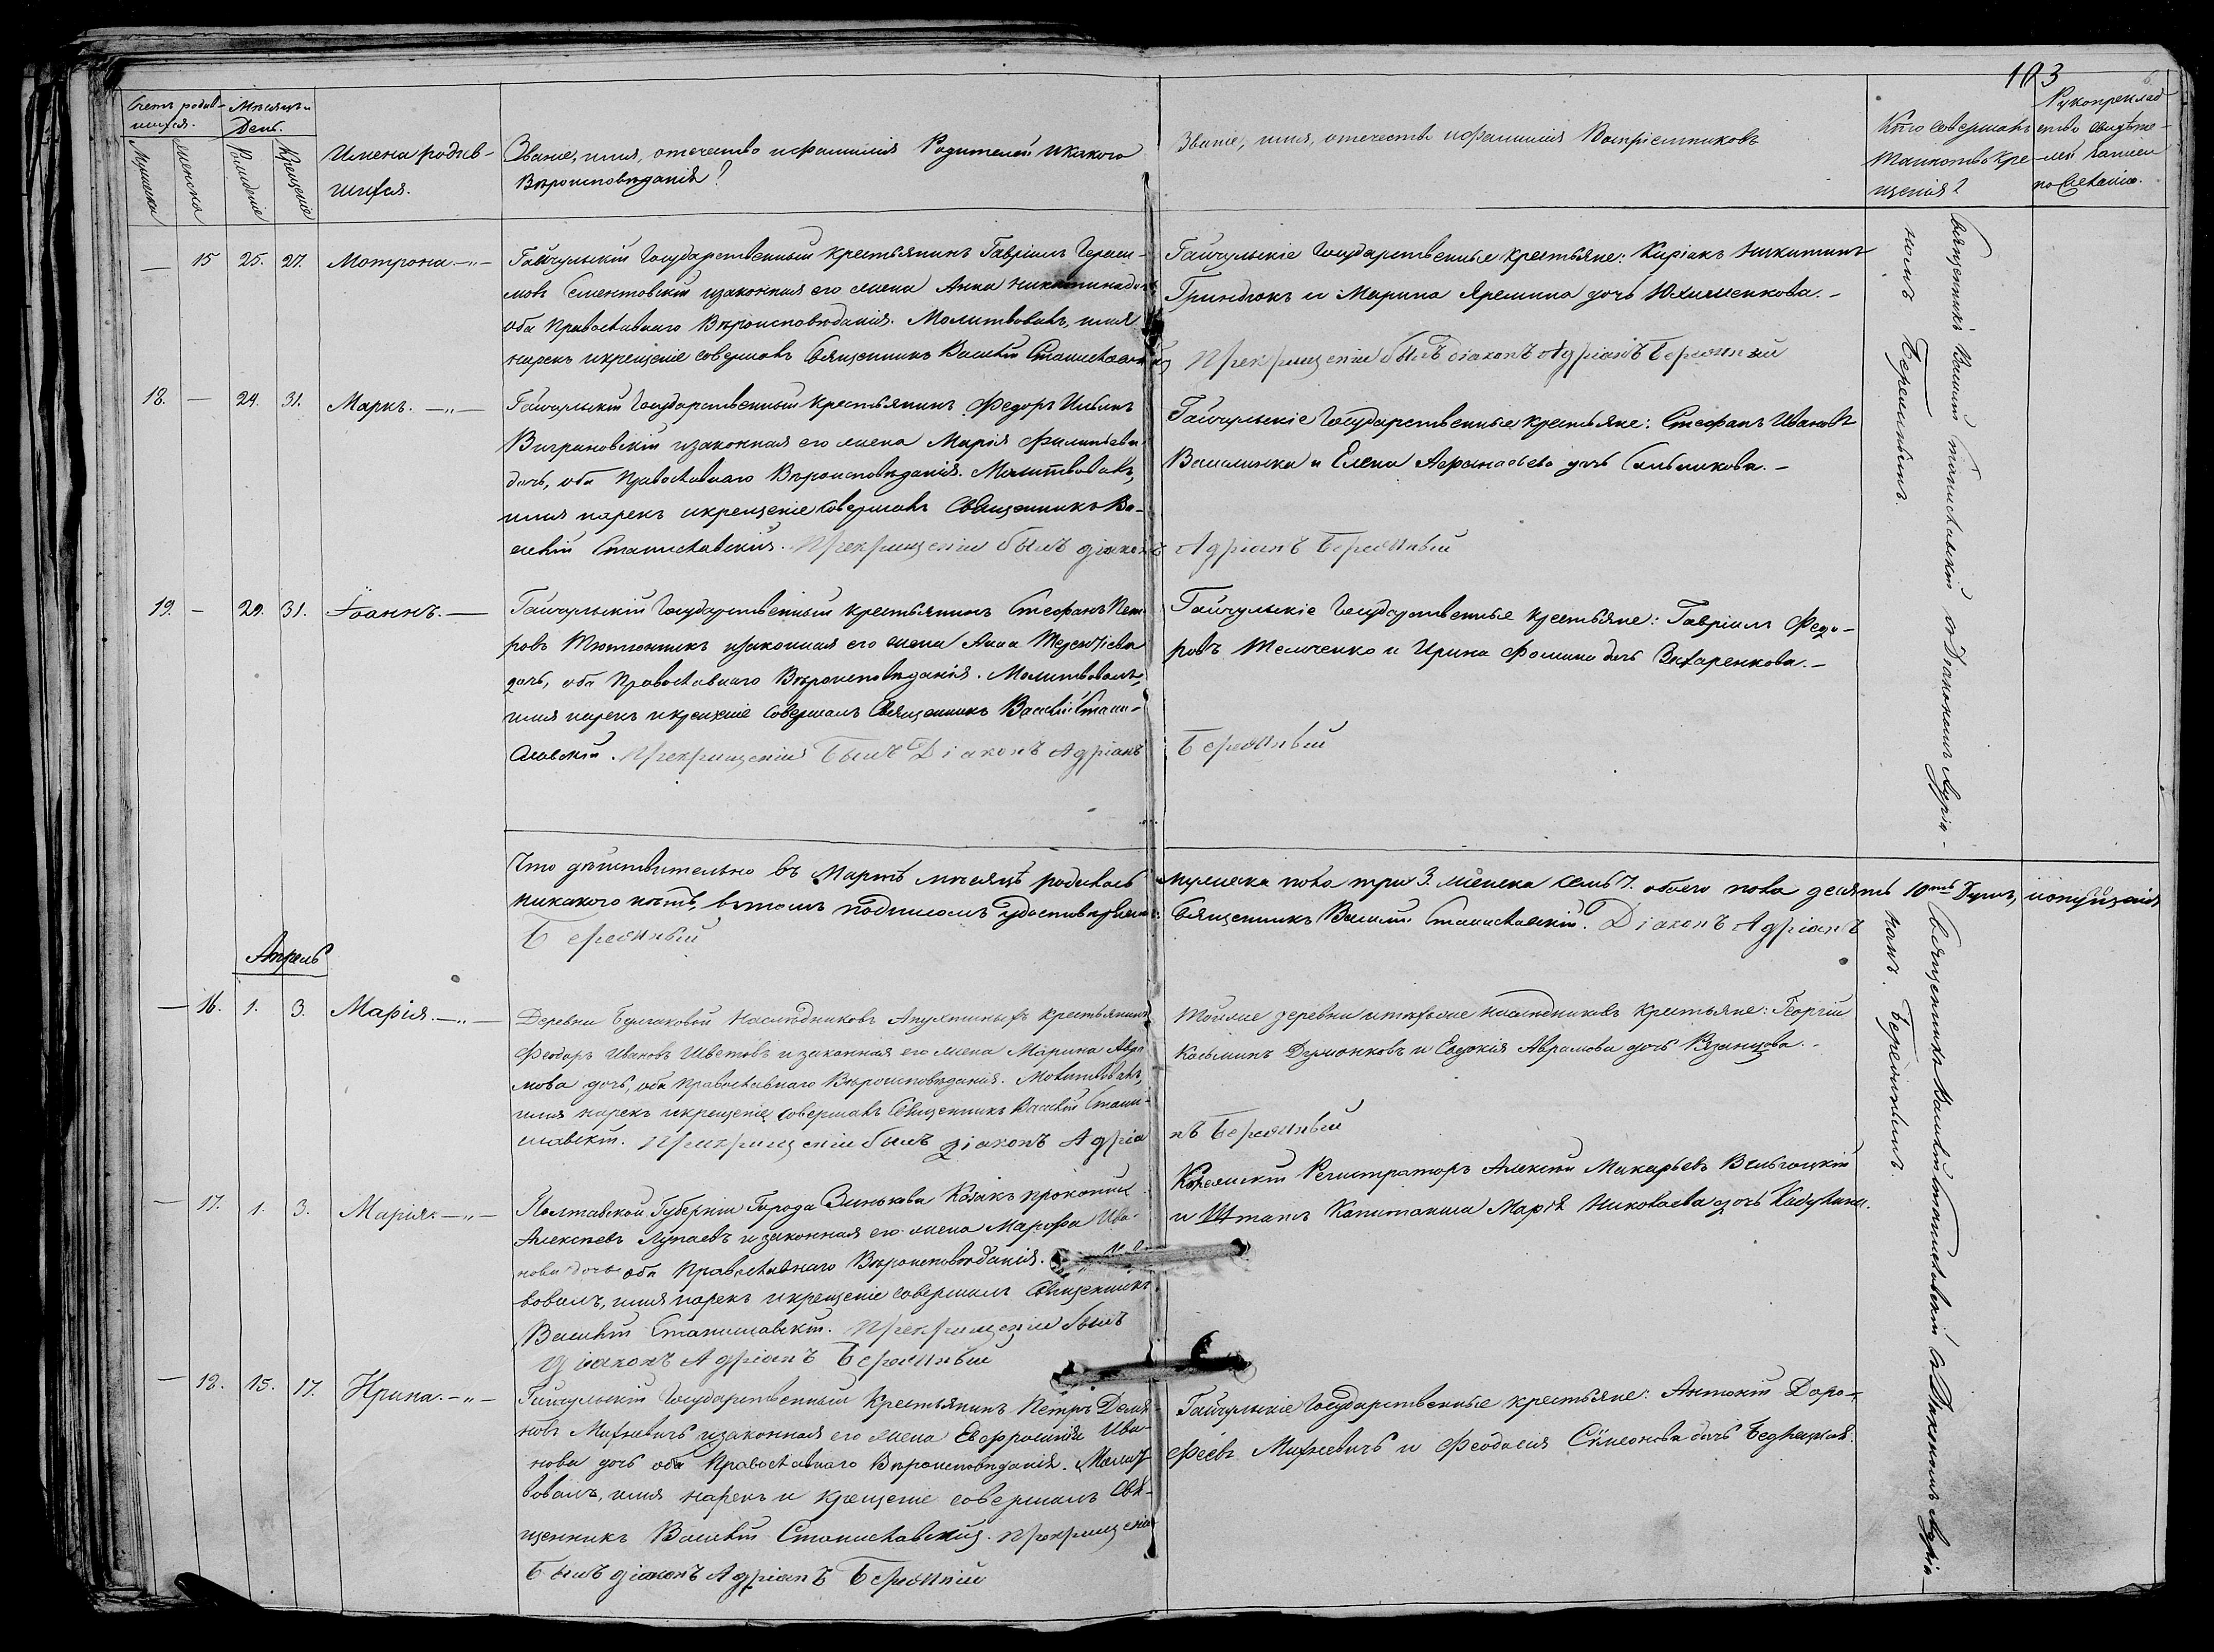 103
Счетъ родив-
шихся.
Мѣсяцъ и
День.
Мужеска
женска
Рожденіе
Крещеніе
Имена родив-
шихся.
Званіе, имя, отечество и фамилия Родителей и какого
Вѣроисповѣданія?
Званіе, имя, отечество и фамилия Воспріемниковъ
Кто совершалъ
Таинство Кре
щенія?
Рукоприклад
ство свидѣте-
лей записи
по желанію.
— 15 25. 27. Мотрона. —„—
Гайчульскій Государственный крестьянинъ Гавріилъ Гераси-
мовъ Сементовскій и законная его жена Анна Никитина дочь
оба Православнаго Вѣроисповѣданія. Молитвовалъ, имя
нарекъ и крещеніе совершалъ Священникъ Василій Станиславскій
Гайчульскіе Государственные крестьяне: Киріакъ Никитинъ
Гриндюкъ и Марина Яремина дочь Юхименкова. —
При крищеніи былъ діаконъ Адріанъ Бережный
18. — 24. 31. Маркъ. —„—
Гайчульскій Государственный крестьянинъ Федоръ Ильинъ
Виграновскій и законная его жена Марія Филипьева
дочь, оба Православнаго Вѣроисповѣданія. Молитвовалъ,
имя нарекъ и крещеніе совершалъ Священникъ Ва-
силій Станиславскій. При крищеніи былъ діаконъ
Гайчульскіе Государственные крестьяне: Стефанъ Ивановъ
и Елена Афанасьева дочь
Адріанъ Бережный
19. — 29. 31. Іоаннъ. —
Гайчульскій Государственный крестьянинъ Стефанъ Пет-
ровъ Тютюнникъ и законная его жена Анна Терентіева
дочь, оба Православнаго Вѣроисповѣданія. Молитвовалъ,
имя нарекъ и крещеніе совершалъ Священникъ Василій Стани-
славскій. При крищеніи Былъ Діаконъ Адріанъ
Гайчульскіе Государственные крестьяне: Гавріилъ Федо-
ровъ Темченко и Ирина Фомина дочь Захаренкова. —
Бережный
Священникъ Василій Станиславскій съ Діакономъ Адріа-
номъ Бережнымъ.
Что дѣйствительно въ Мартѣ мѣсяцѣ родилось мужеска пола три 3. женска семь 7. обоего пола десять 10ть Душъ, и опущенія
никакого нѣтъ, въ томъ подписомъ удостовѣряемъ: Священникъ Василій Станиславскій. Діаконъ Адріанъ
Бережный
Апрель
— 16. 1. 3. Марія. —„—
Деревни Булгаковой Наслѣдниковъ Апухтиныхъ крестьянинъ
Феодоръ Ивановъ Цветовъ и законная его жена Марина Авра
мова дочь, оба Православнаго Вѣроисповѣданія. Молитвовалъ,
имя нарекъ и крещеніе совершалъ Священникъ Василій Стани-
славскій. При крищеніи былъ діаконъ Адріа
Тойже деревни и техже наслѣдниковъ крестьяне: Георгій
Косьминъ и Евдокія Аврамова дочь Рязанцова. —
нъ Бережный
— 17. 1. 3. Марія. —„—
Полтавской Губерніи Города Зинькова Козакъ Прокопій
Алексѣевъ Лупаевъ и законная его жена Марфа Ива-
нова дочь оба Православнаго Вѣроисповѣданія.
вовалъ, имя нарекъ и крещеніе совершалъ Священникъ
Василій Станиславскій. При крищеніи былъ
діаконъ Адріанъ Бережный
Регистраторъ Алексѣй Макарьевъ Вельгоцкій
и Штапъ Капитанша Марія Николаева дочь
— 18. 15. 17. Ирина. —„—
Гайчульскій Государственный Крестьянинъ Петръ Демья-
новъ Михневичъ и законная его жена Евфросинія Ива
нова дочь оба Православнаго Вѣроисповѣданія. Молит
вовалъ, имя нарекъ и крещеніе совершалъ Свя-
щенникъ Василій Станиславскій. При крищеніи
Былъ діаконъ Адріанъ Бережный
Гайчульскіе Государственные крестьяне: Антоній Доро-
феевъ Михневичъ и Феодосія Симеонова дочь
Священникъ Василій Станиславскій съ Діакономъ Адріа-
номъ. Бережнымъ